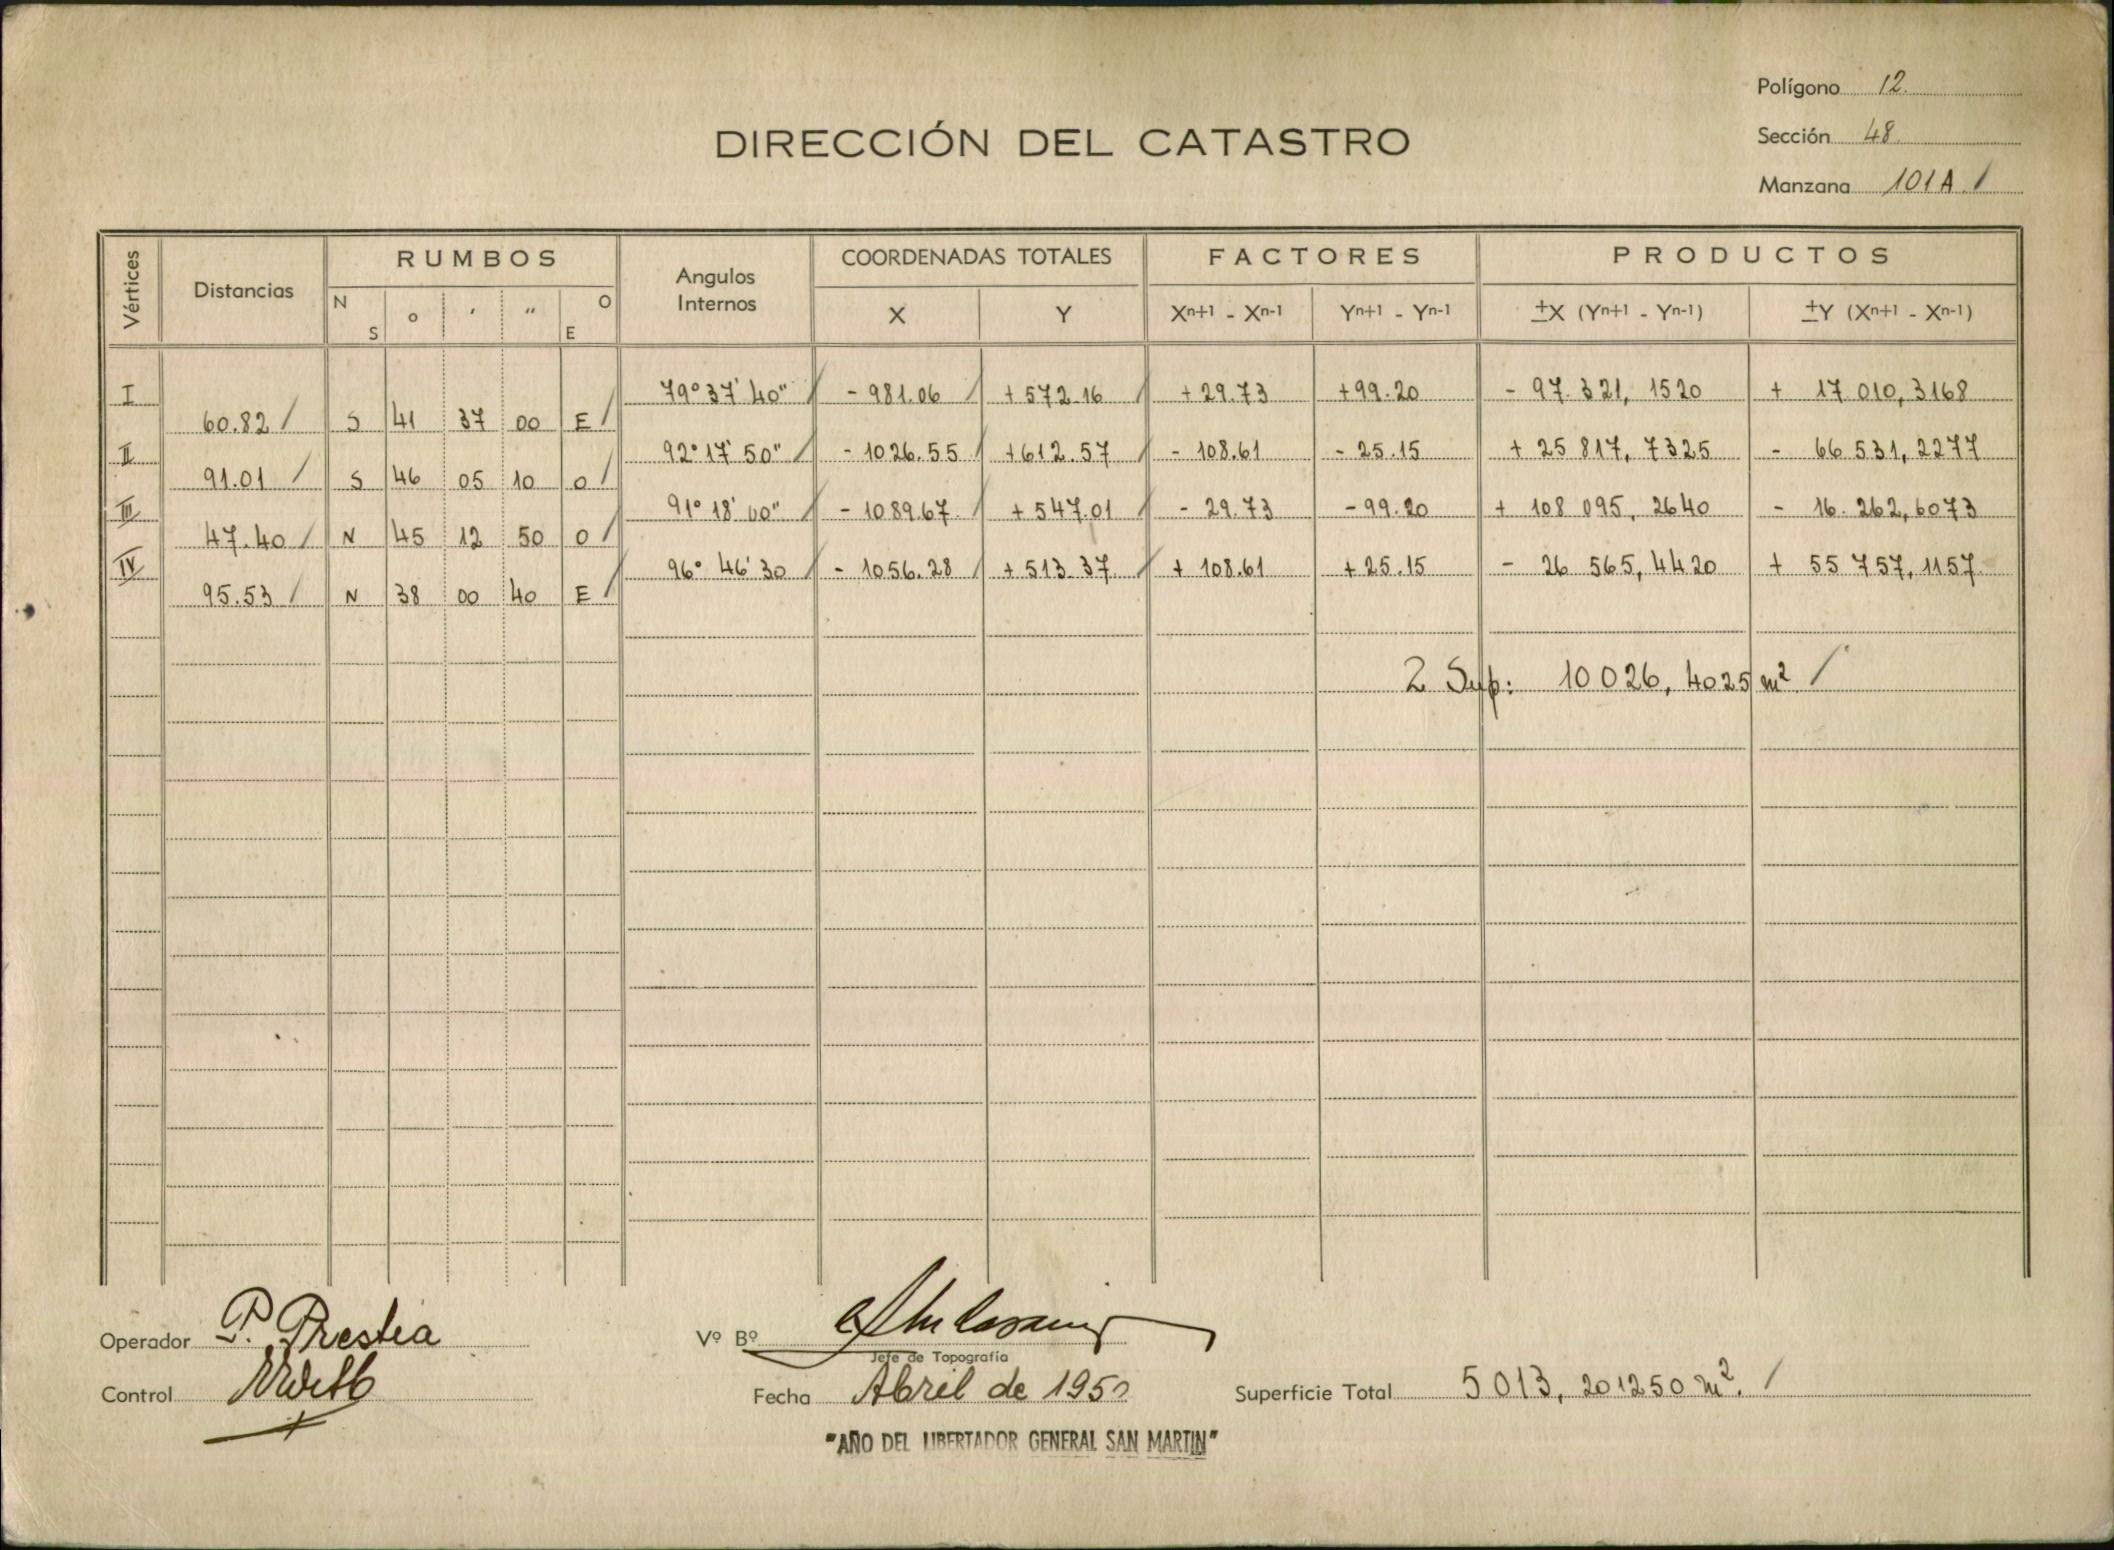 Polígono 12.
DIRECCIÓN DEL CATASTRO
Sección 48.
Manzana 101A /
Vértices Distancias RUMBOS Angulos Internos COORDENADAS TOTALES FACTORES PRODUCTOS
N S ° ' " O E X Y Xn+1 - Xn-1 Yn+1 - Yn-1 ±X (Yn+1 - Yn-1) ±Y (Xn+1 - Xn-1)
I 79°37'40" / - 981.06 / + 572.16 / + 29.73 + 99.20 - 97.321, 1520 + 17 010, 3168
60.82 / S 41 37 00 E /
II 92°17'50" / - 1026.55 / + 612.57 / - 108.61 - 25.15 + 25 817, 7325 - 66 531, 2277
91.01 / S 46 05 10 O /
III 91°18'00" / - 1089.67 + 547.01 / - 29.73 - 99.20 + 108 095, 2640 - 16.262, 6073
47.40 / N 45 12 50 O /
IV 96° 46' 30 / - 1056.28 / + 513.37 / + 108.61 + 25.15 - 26 565, 4420 + 55 757, 1157
95.53 / N 38 00 40 E /
2 Sup: 10 026, 4025 m² /
Operador P. Prestia
Vº Bº
Jefe de Topografía
Control
Fecha Abril de 1950
Superficie Total 5 013, 201250 m². /
"AÑO DEL LIBERTADOR GENERAL SAN MARTIN"